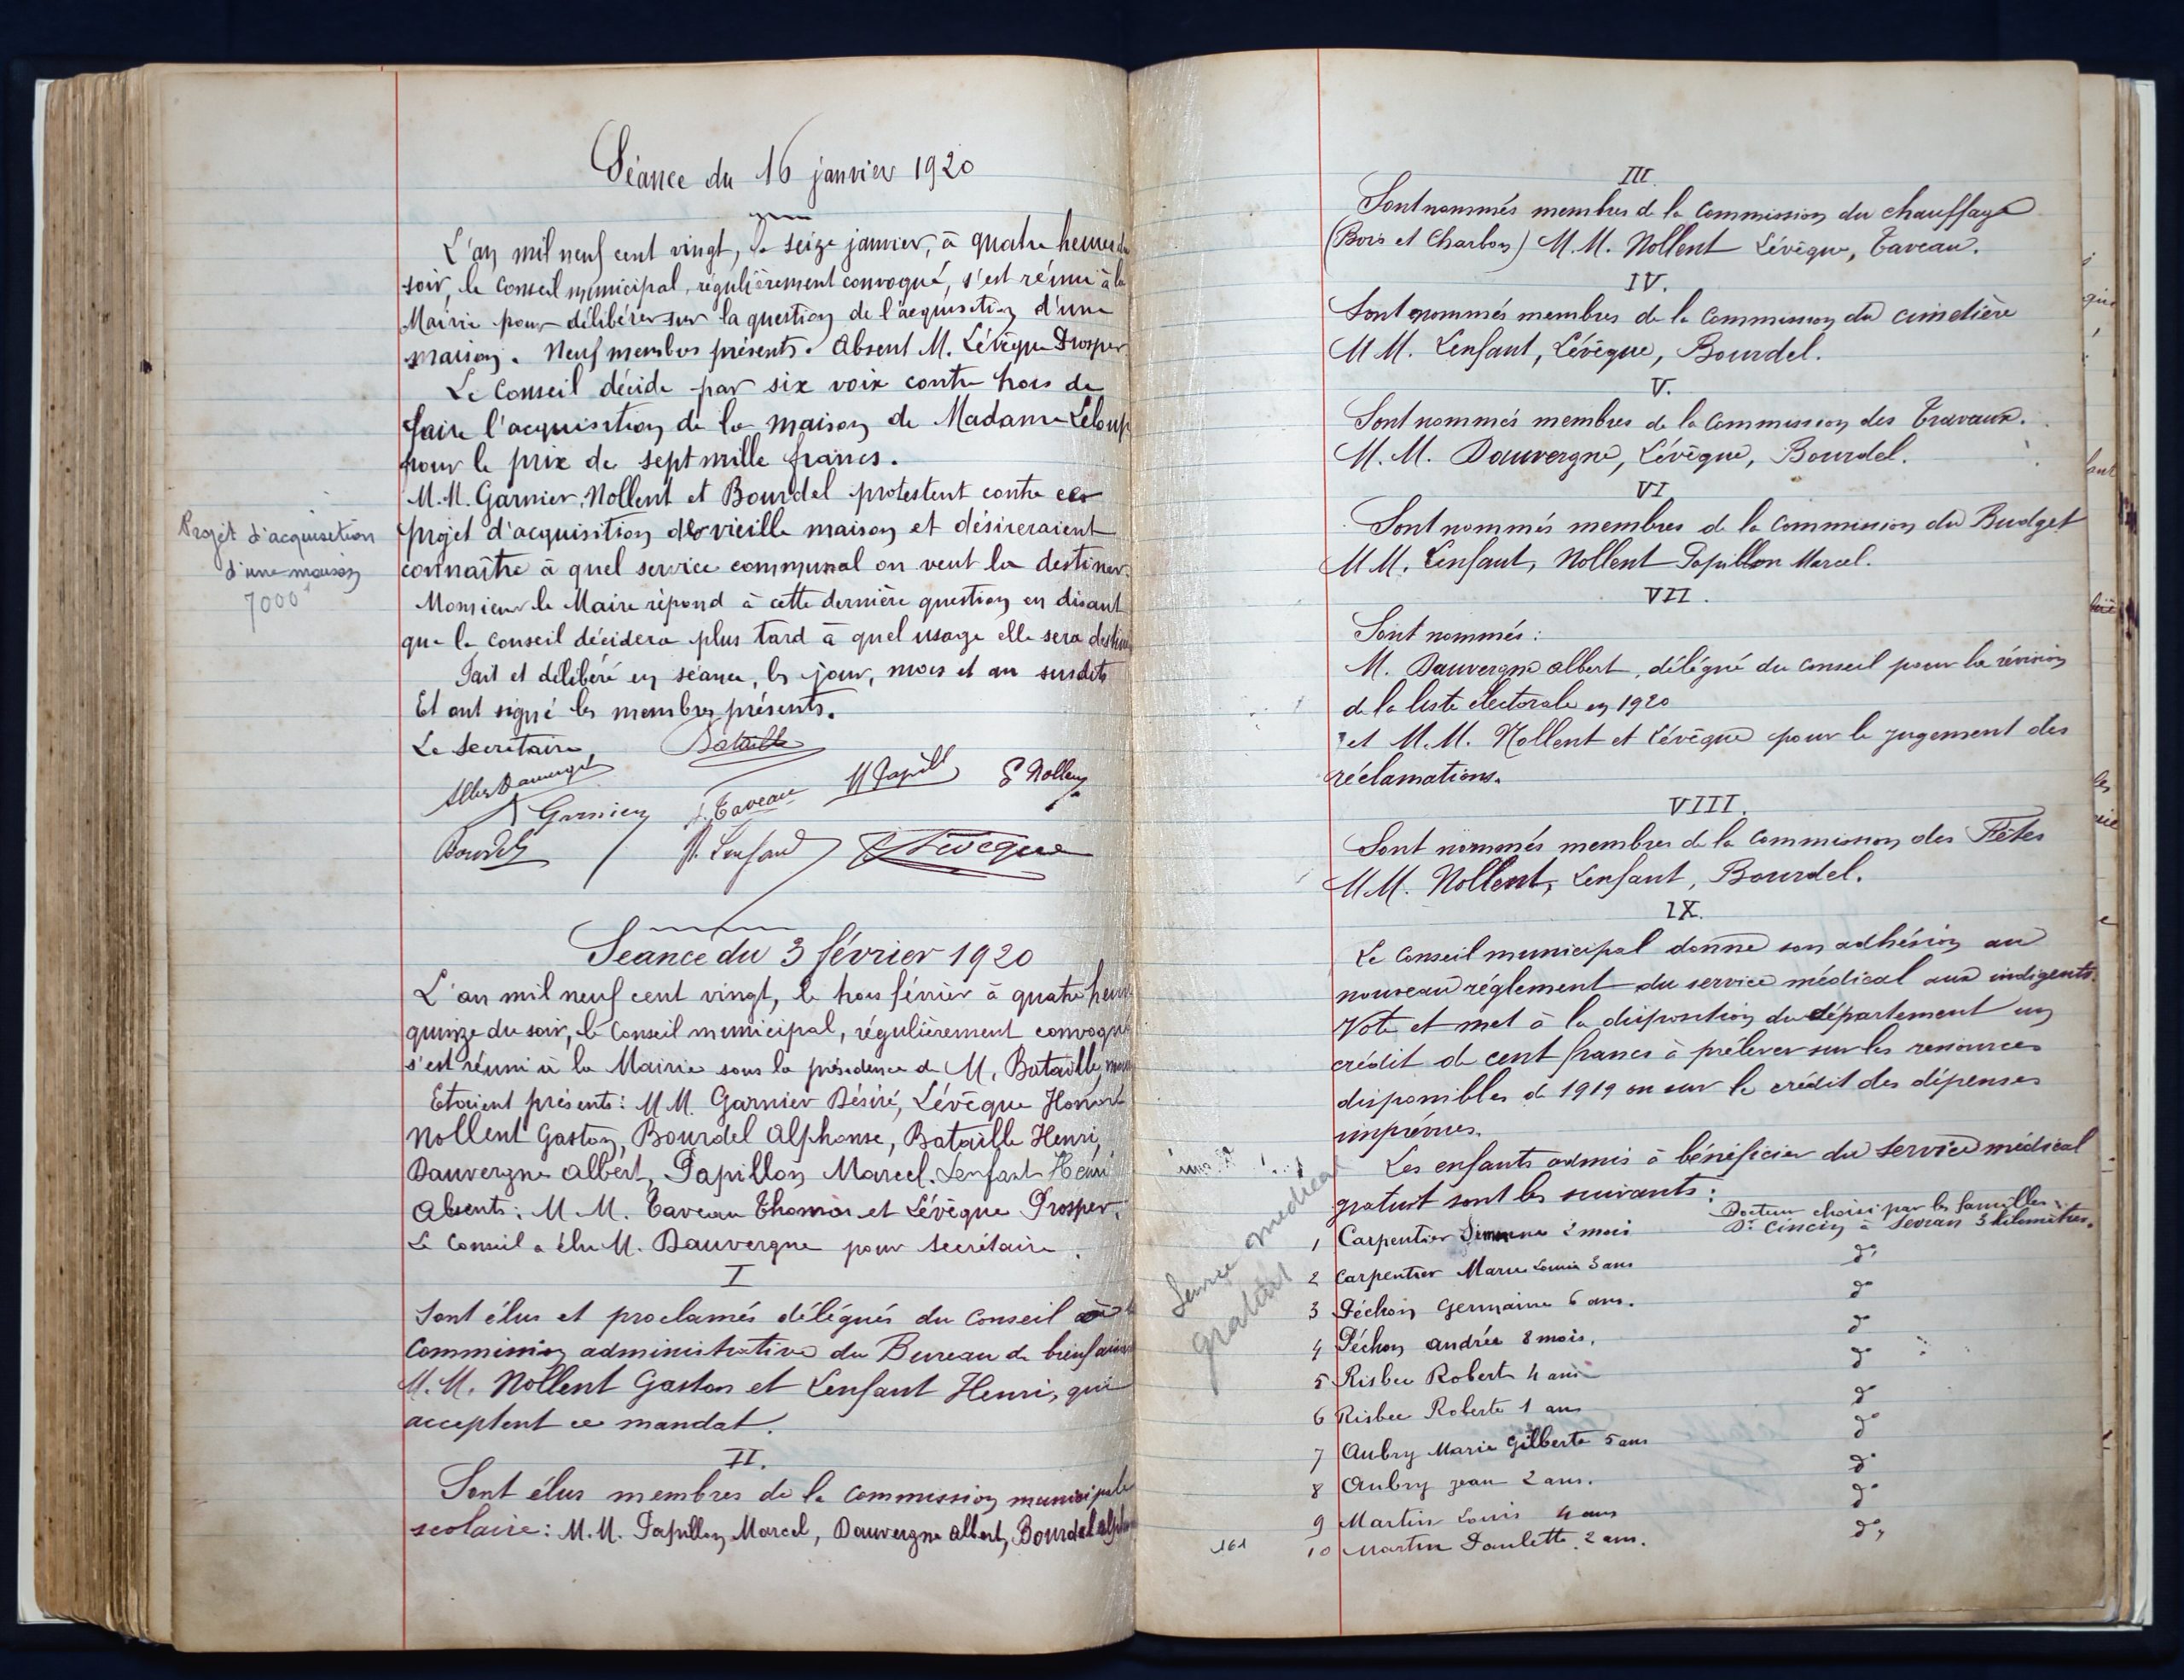 Séance du 16 janvier 1920
L'an mil neuf cent vingt, le seize janvier, à quatre heures du
soir, le Conseil municipal, régulièrement convoqué, s'est réuni à la
Mairie pour délibérer sur la question de l'acquisition d'une
maison. Neuf membres présents. Absent M. Lévêque Prosper
Le Conseil décide par six voix contre trois de
faire l'acquisition de la maison de Madame Leloup
pour le prix de sept mille francs.
M.M. Garnier, Nollent et Bourdel protestent contre ce
projet d'acquisition de vieille maison et désireraient
connaître à quel service communal on veut la destiner.
Monsieur le Maire répond à cette dernière question en disant
que le Conseil décidera plus tard à quel usage elle sera destin
Fait et délibéré en séance, les jour, mois et an susdits
Et ont signé les membres présents.
Le Secrétaire, Bataille
Albert Dauvergne M Papill G Nollent
Garnier T. Taveau
Bourdel H. Lenfant Lévêque
Projet d'acquisition
d'une maison
7000 f
Séance du 3 février 1920
L'an mil neuf cent vingt, le trois février à quatre heur
quinze du soir, le Conseil municipal, régulièrement convoqué
s'est réuni à la Mairie sous la présidence de M. Bataille, mai
Etaient présents: M.M. Garnier Désiré, Lévêque Honoré
Nollent Gaston, Bourdel Alphonse, Bataille Henri,
Dauvergne Albert, Papillon Marcel. Lenfant Henri
Absents: M.M. Taveau Thomas et Lévêque Prosper.
Le Conseil a élu M. Dauvergne pour secrétaire.
I
Sont élus et proclamés délégués du Conseil à la
Commission administrative du Bureau de bienfaisan
M.M. Nollent Gaston et Lenfant Henri, qui
acceptent ce mandat.
II.
Sont élus membres de la Commission municipale
scolaire: M.M. Papillon Marcel, Dauvergne Albert, Bourdel Alph
III.
Sont nommés membres de la Commission du chauffage
(Bois et Charbon) M.M. Nollent Lévêque, Taveau.
IV.
Sont nommés membres de la Commission du cimetière
MM. Lenfant, Lévêque, Bourdel.
V.
Sont nommés membres de la Commission des Travaux.
M.M. Dauvergne, Lévêque, Bourdel.
VI
Sont nommés membres de la Commission du Budget
MM. Lenfant, Nollent Papillon Marcel.
VII.
Sont nommés:
M. Dauvergne Albert, délégué du Conseil pour la révision
de la liste électorale en 1920
et M.M. Nollent et Lévêque pour le jugement des
réclamations.
VIII.
Sont nommés membres de la Commission des Fêtes
MM. Nollent, Lenfant, Bourdel.
IX.
Le Conseil municipal donne son adhésion au
nouveau réglement du service médical aux indigents.
Vote et met à la disposition du département un
crédit de cent francs à prélever sur les ressources
disponibles de 1919 ou sur le crédit des dépenses
imprévues.
Les enfants admis à bénéficier du service médical
gratuit sont les suivants:
Docteur choisi par les familles:
Service médical
gratuit
1 Carpentier Simonne 2 mois Dr Cincin à Sevran 3 kilomètres.
2 Carpentier Marie Louise 3 ans do
3 Péchon Germaine 6 ans. do
4 Péchon Andrée 8 mois. do
5 Risbec Robert 4 ans do
6 Risbec Roberte 1 an do
7 Aubry Marie Gilberte 5 ans do
8 Aubry Jean 2 ans. do
9 Martin Louis 4 ans do
10 Martin Paulette 2 ans. do
161